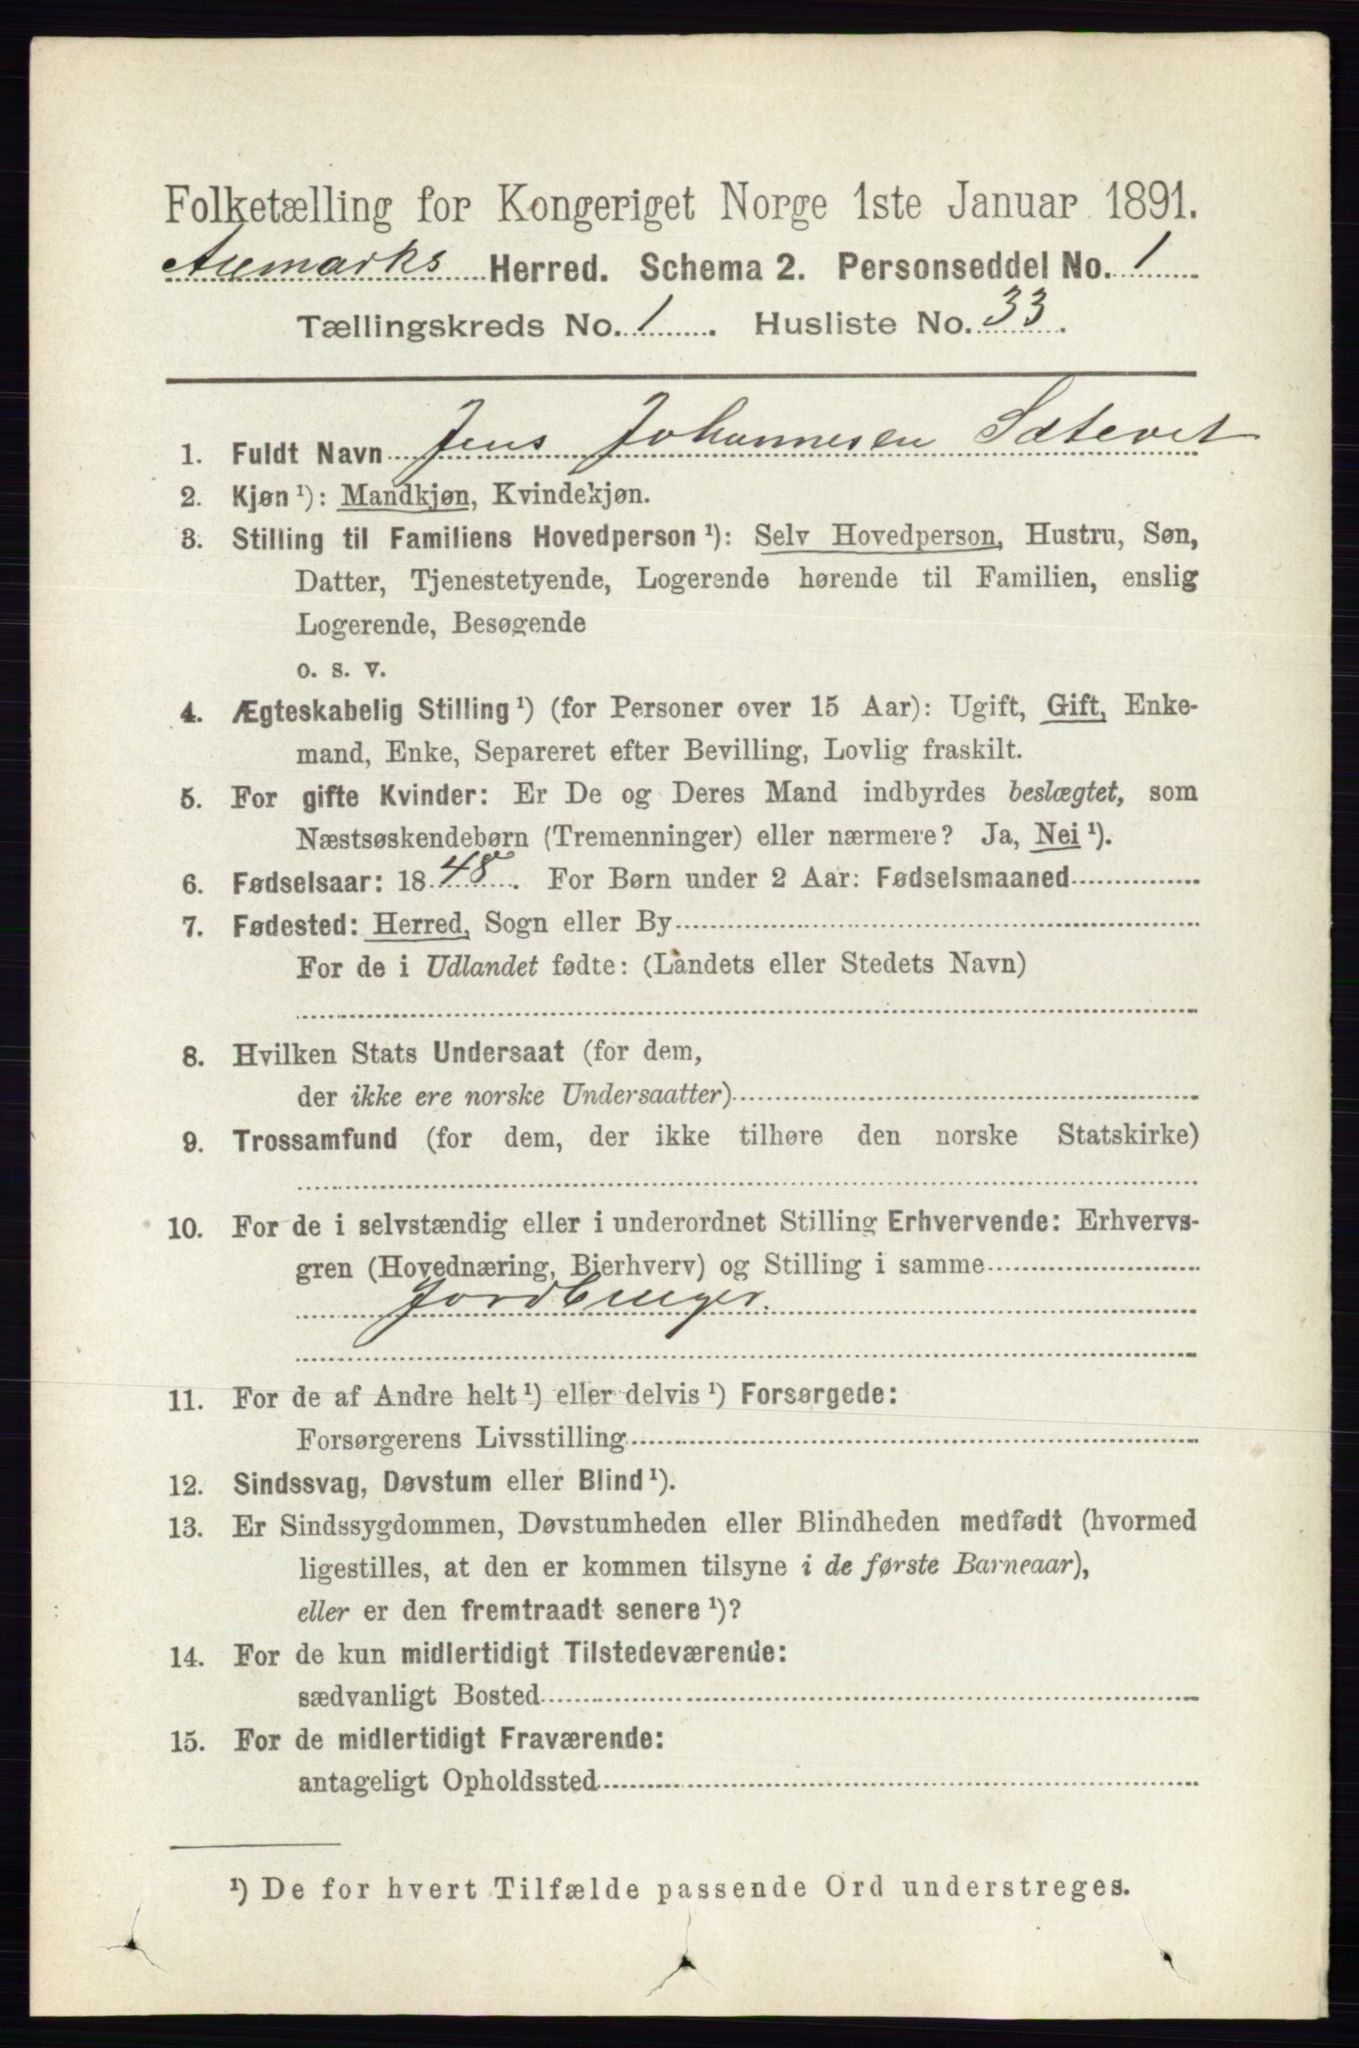 Folketælling for Kongeriget Norge 1ste Januar 1891.
Aremarks Herred. Schema 2. Personseddel No. 1
Tællingskreds No. 1. Husliste No. 33.
1. Fuldt Navn Jens Johannesen Sætevet
2. Kjøn ¹): Mandkjøn, Kvindekjøn.
3. Stilling til Familiens Hovedperson ¹): Selv Hovedperson, Hustru, Søn,
Datter, Tjenestetyende, Logerende hørende til Familien, enslig
Logerende, Besøgende
o. s. v.
4. Ægteskabelig Stilling ¹) (for Personer over 15 Aar): Ugift, Gift, Enke-
mand, Enke, Separeret efter Bevilling, Lovlig fraskilt.
5. For gifte Kvinder: Er De og Deres Mand indbyrdes beslægtet, som
Næstsøskendebørn (Tremenninger) eller nærmere? Ja, Nei ¹).
6. Fødselsaar: 1848. For Børn under 2 Aar: Fødselsmaaned
7. Fødested: Herred, Sogn eller By
For de i Udlandet fødte: (Landets eller Stedets Navn)
8. Hvilken Stats Undersaat (for dem,
der ikke ere norske Undersaatter)
9. Trossamfund (for dem, der ikke tilhøre den norske Statskirke)
10. For de i selvstændig eller i underordnet Stilling Erhvervende: Erhvervs-
gren (Hovednæring, Bierhverv) og Stilling i samme
Jordbruger.
11. For de af Andre helt ¹) eller delvis ¹) Forsørgede:
Forsørgerens Livsstilling
12. Sindssvag, Døvstum eller Blind ¹).
13. Er Sindssygdommen, Døvstumheden eller Blindheden medfødt (hvormed
ligestilles, at den er kommen tilsyne i de første Barneaar),
eller er den fremtraadt senere ¹)?
14. For de kun midlertidigt Tilstedeværende:
sædvanligt Bosted
15. For de midlertidigt Fraværende:
antageligt Opholdssted
¹) De for hvert Tilfælde passende Ord understreges.